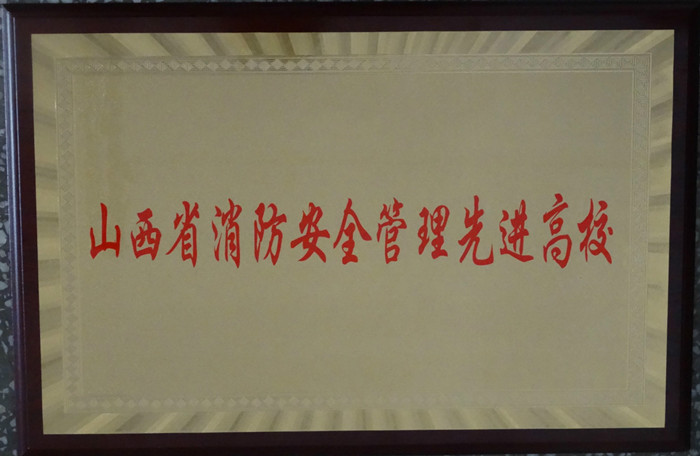 山西省消防安全管理先进高校